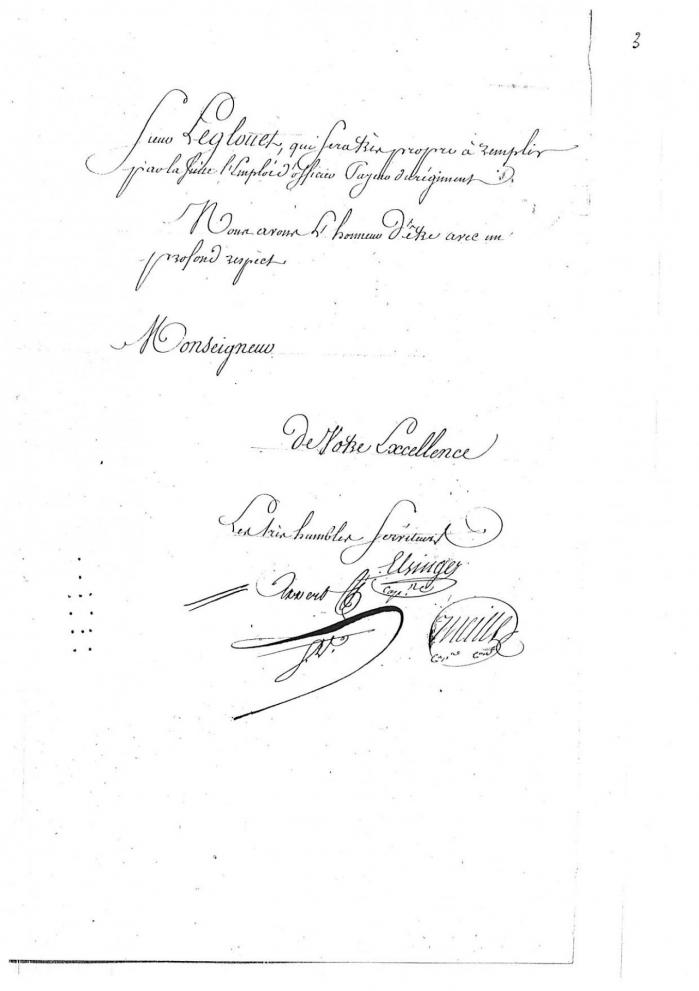 3
Sieur Leglouet, qui sera très propre à remplir
par la suite l'Emploi d'officier Payeur du régiment.
Nous avons l'honneur d'être avec un
profond respect
Monseigneur
de Votre Excellence
Les très humbles Serviteurs
Elsinger
Capne
Capne